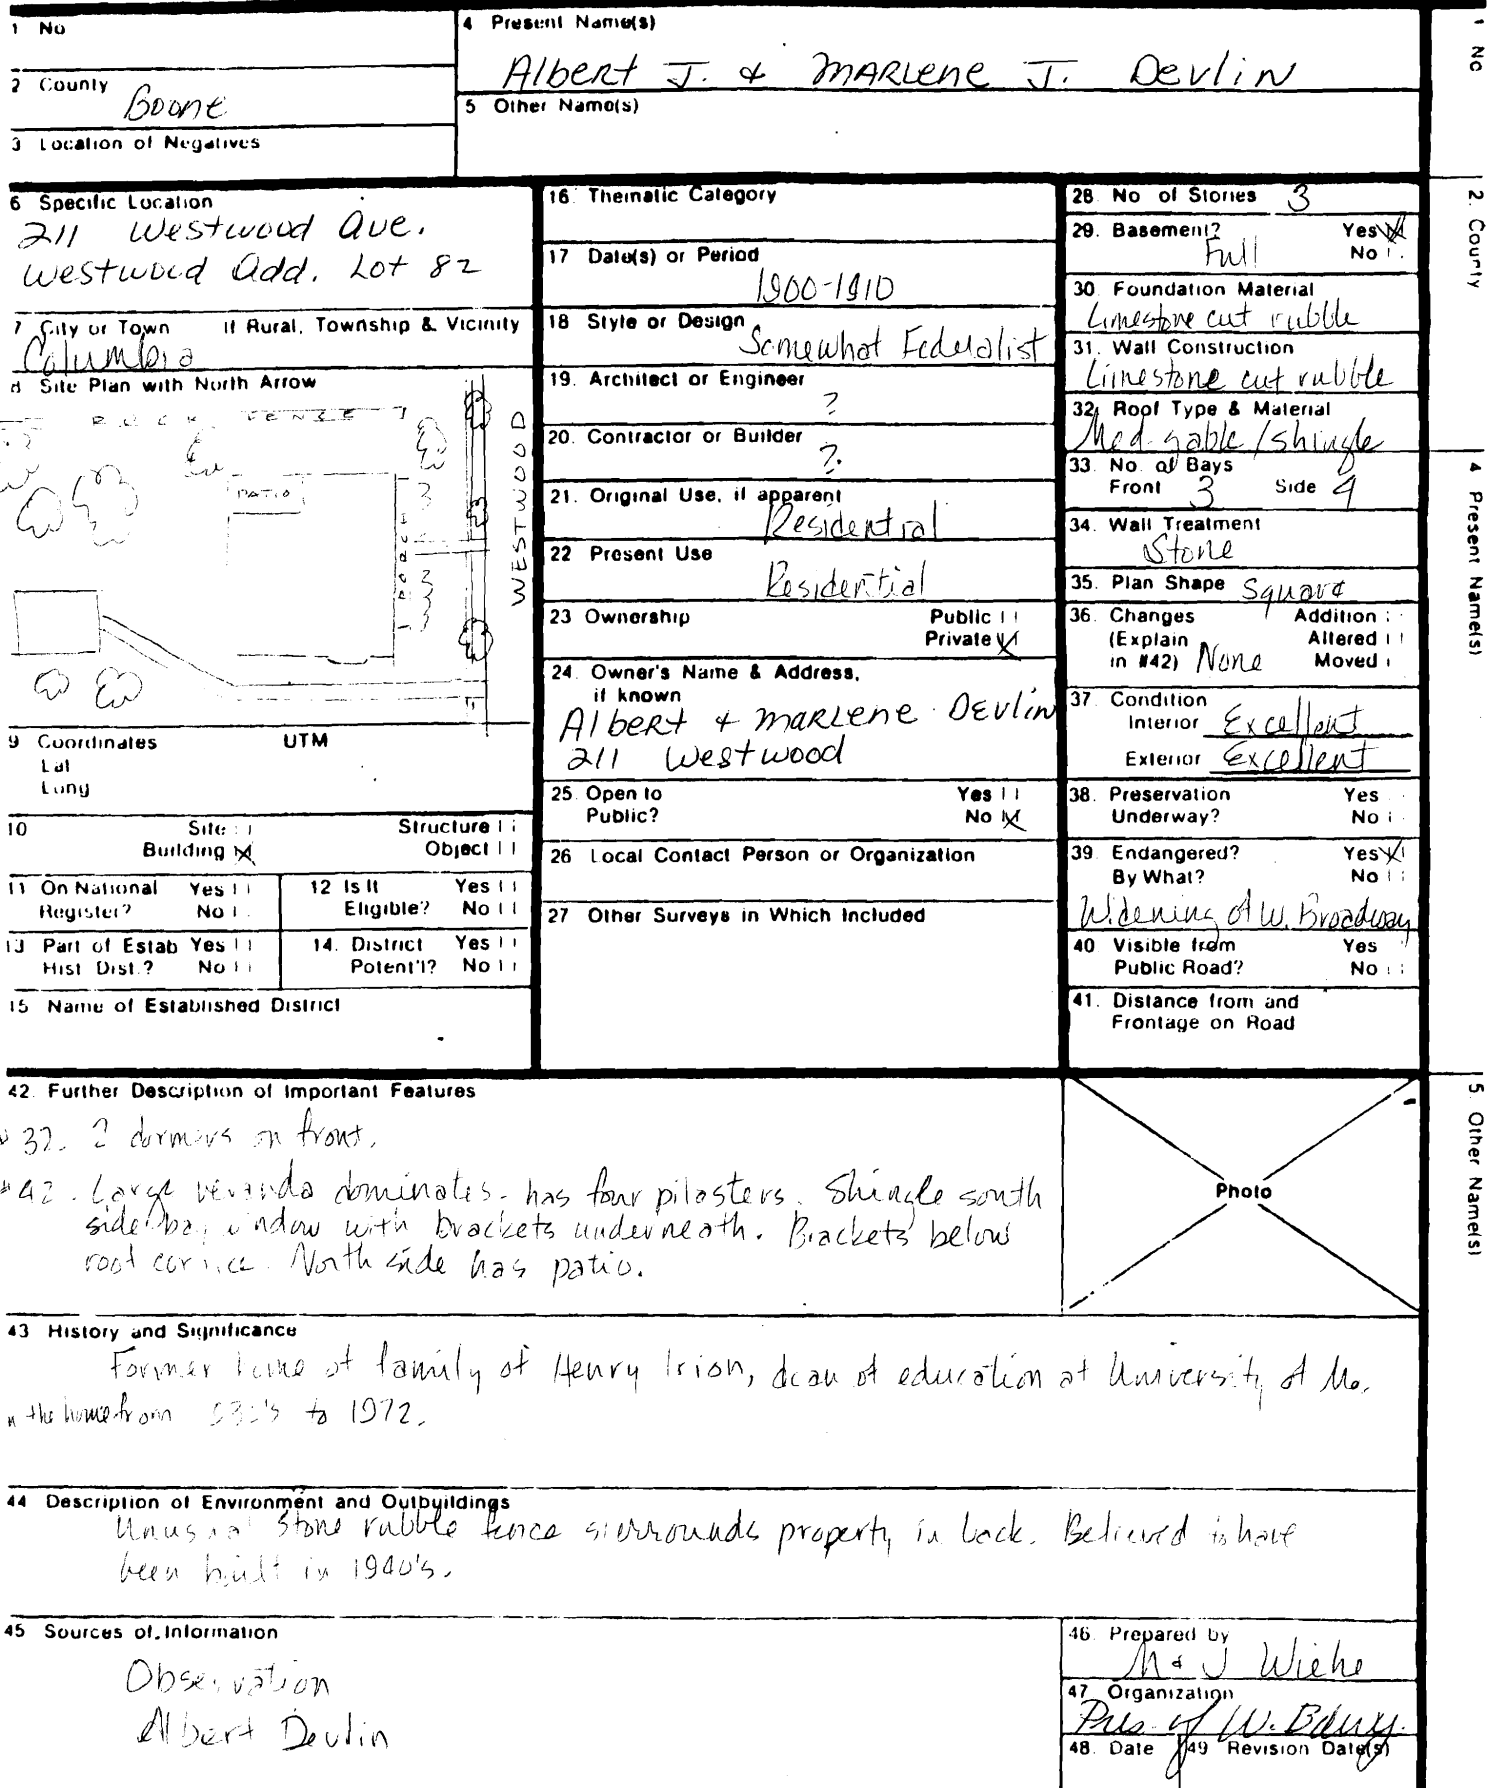 1 No
4 Present Name(s)
Albert J. & Marlene J. Devlin
2 County
Boone
5 Other Name(s)
3 Location of Negatives
6 Specific Location
211 Westwood Ave.
Westwood Add. Lot 82
7 City or Town If Rural, Township & Vicinity
Columbia
8 Site Plan with North Arrow
ROCK FENCE
PATIO
PORCH
WESTWOOD
9 Coordinates UTM
Lat
Long
10 Site Structure
Building Object
11 On National Register? Yes No
12 Is It Eligible? Yes No
13 Part of Estab Hist Dist.? Yes No
14. District Potent'l? Yes No
15 Name of Established District
16. Thematic Category
17 Date(s) or Period
1900-1910
18 Style or Design
Somewhat Federalist
19. Architect or Engineer
?
20. Contractor or Builder
?
21. Original Use, if apparent
Residential
22 Present Use
Residential
23 Ownership Public
Private
24. Owner's Name & Address,
if known
Albert + Marlene Devlin
211 Westwood
25. Open to Yes
Public? No
26 Local Contact Person or Organization
27 Other Surveys in Which Included
28. No of Stories 3
29. Basement? Yes
Full No
30 Foundation Material
Limestone cut rubble
31. Wall Construction
Limestone cut rubble
32. Roof Type & Material
Med. gable/shingle
33. No. of Bays
Front 3 Side 4
34. Wall Treatment
Stone
35. Plan Shape Square
36. Changes Addition
(Explain Altered
in #42) None Moved
37. Condition
Interior Excellent
Exterior Excellent
38. Preservation Yes
Underway? No
39. Endangered? Yes
By What? No
Widening of W. Broadway
40 Visible from Yes
Public Road? No
41. Distance from and
Frontage on Road
42. Further Description of Important Features
32. 2 dormers on front.
#42. Large veranda dominates - has four pilasters. Shingle south
side bay window with brackets underneath. Brackets below
roof cornice. North side has patio.
Photo
43 History and Significance
Former home of family of Henry Irion, dean of education at University of Mo.
the home from to 1972.
44 Description of Environment and Outbuildings
Unusual stone rubble fence surrounds property in back. Believed to have
been built in 1940's.
45 Sources of Information
Observation
Albert Devlin
46. Prepared by
M & J Wiehe
47 Organization
Pres. of W. Bdwy.
48. Date 49 Revision Date(s)
1 No
2. County
4 Present Name(s)
5 Other Name(s)